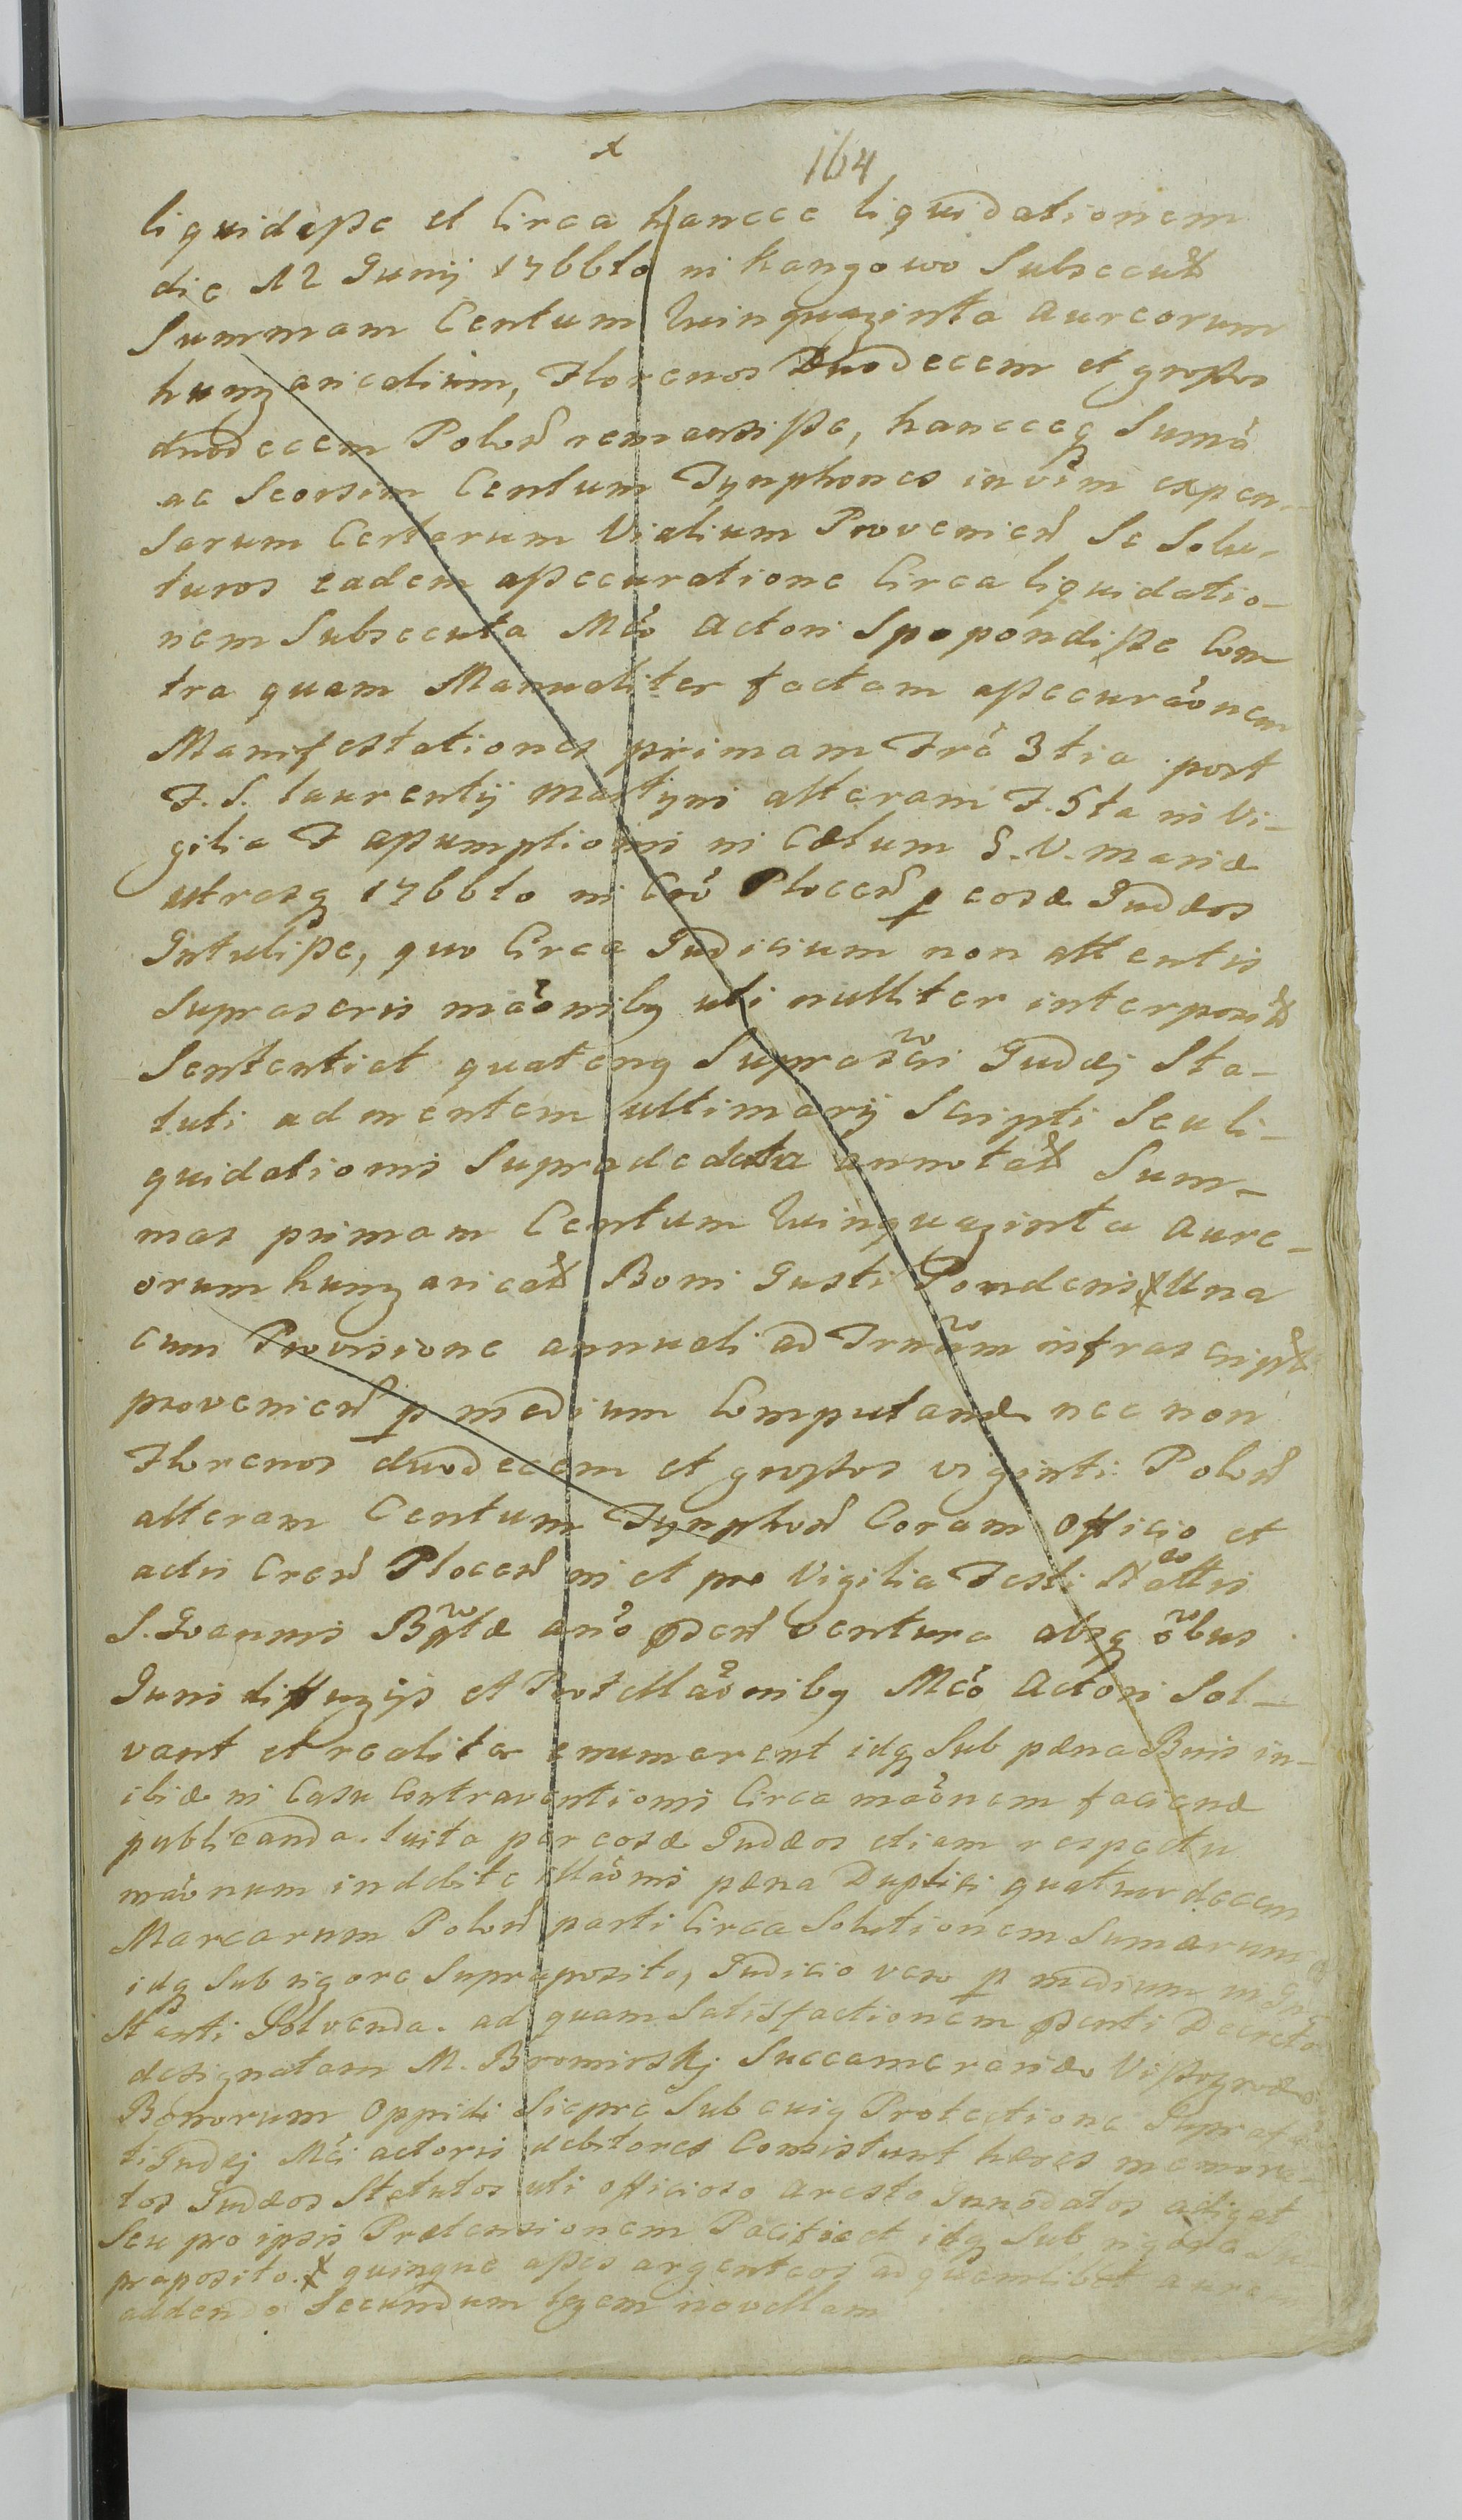 164
liquidasse et Circa hancce liquidationem
die 12 Junij 1766to in Kangowo Subsecut
Summam Centum Quinquaginta Aureorum
hungaricalium, Florenos Duodecem et grossos
duodecem Polon remansisse, hancceq Suma
ac Seorsim Centum Tynphones in vim expen-
sarum Certarum Vialium Provenien Se Solu-
turos eadem assecuratione Circa liquidatio-
nem Subsecuta Mco Actori Spopondisse Con
tra quam Manualiter factam assecuraonem
Manifestationes primam Fra 3tia post
F. S. Laurentij Martyris alteram F. 5ta in Vi-
gilia F assumptionis in Cælum S. V. Mariæ
utrasq 1766to in Cro Plocen p eosd Judæos
Intulisse, quo Circa Judicium non attentis
Suprascris maonibq uti nulliter interposit
Sententiat quatenq Suprascri Judæj Sta-
tuti ad mentem ultimarij Scripti Seu li-
quidationis Supradedata annotat Sum-
mas primam Centum Quinquaginta Aure-
orum hungarical Boni Justi Ponderis Una
cum Provisione annuali ad Trnum infrascript
provenien p medium Computand nec non
Florenos duodecem et grossos viginti Polon
alteram Centum Tynphon Coram Officio et
actis Cren Plocen in et pro Vigilia Festi Nattis
S. Joannis Bptæ ano psen ventura absq obus
Juris diffugijs et Protellaonibq Mco Actori Sol-
vant et realiter enumerent idq Sub pæna Bnis in-
ibid in Casu Contraventionis Circa maonem faciend
publicanda. luita per eosd Judæos etiam respectu
maonum indebite illaonis pæna Duplici quatuordecem
Marcarum Polon parti Circa Solutionem Sumarum
idq Sub rigore Supraposito, Judicio vero p medium
Stanti Solvenda. ad quam Satisfactionem psenti Decreto
designatam M. Bromirskj Succamerarid Vissogrod
Bonorum Oppidi Sieprc Sub cuiq Protectione Supra
ti Judæj Mci actoris debitores Consistunt hæres memora-
tos Judæos Statutos uti officioso Aresto Innodatos adigat
Seu pro ipsis Prætensionem Pacitiat idq Sub rigore Su-
praposito. quinque asses argenteos ad quemlibet aureu
addendo Secundum legem novellam